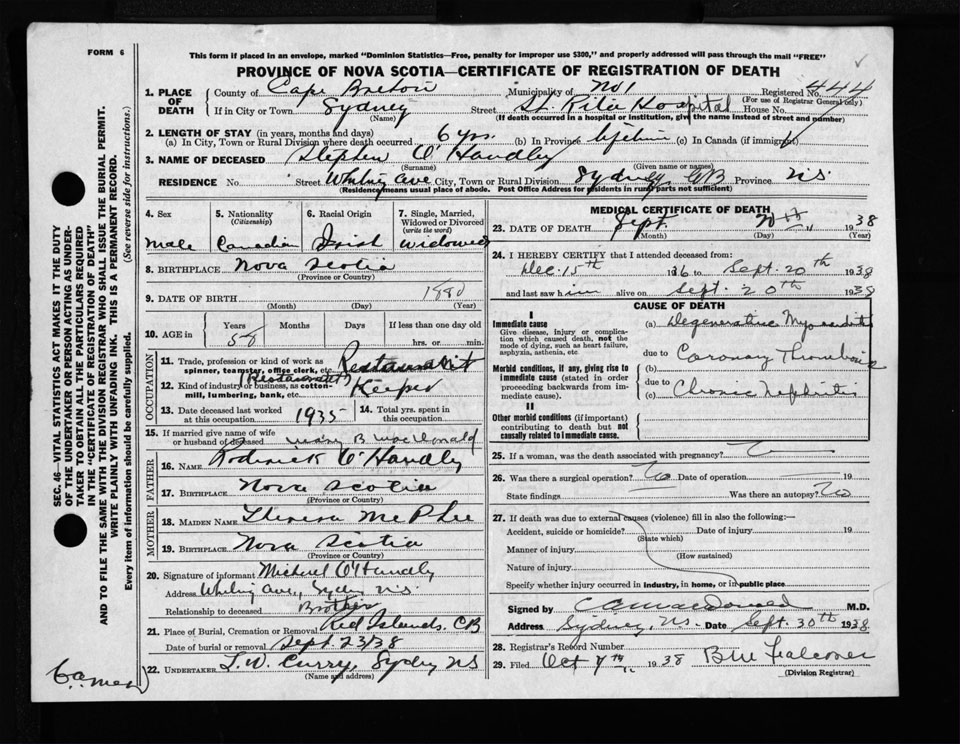 FORM 6
This form if placed in an envelope, marked "Dominion Statistics—Free, penalty for improper use $300," and properly addressed will pass through the mail "FREE"
PROVINCE OF NOVA SCOTIA—CERTIFICATE OF REGISTRATION OF DEATH
SEC. 46—VITAL STATISTICS ACT MAKES IT THE DUTY
OF THE UNDERTAKER OR PERSON ACTING AS UNDER-
TAKER TO OBTAIN ALL THE PARTICULARS REQUIRED
IN THE "CERTIFICATE OF REGISTRATION OF DEATH"
AND TO FILE THE SAME WITH THE DIVISION REGISTRAR WHO SHALL ISSUE THE BURIAL PERMIT.
WRITE PLAINLY WITH UNFADING INK. THIS IS A PERMANENT RECORD.
Every item of information should be carefully supplied. (See reverse side for instructions.)
1. PLACE OF DEATH County of Cape Breton Municipality of No 1 Registered No. 444
(For use of Registrar General only)
If in City or Town Sydney Street St. Rita Hospital House No.
(Name) (If death occurred in a hospital or institution, give the name instead of street and number)
2. LENGTH OF STAY (in years, months and days)
(a) In City, Town or Rural Division where death occurred 6 yrs. (b) In Province lifetime (c) In Canada (if immigrant)
3. NAME OF DECEASED Stephen O'Handley
(Surname) (Given name or names)
RESIDENCE No. Street Whitney Ave City, Town or Rural Division Sydney, CB Province NS
(Residence means usual place of abode. Post Office Address for residents in rural parts not sufficient)
4. Sex Male
5. Nationality (Citizenship) Canadian
6. Racial Origin Irish
7. Single, Married, Widowed or Divorced (write the word) Widowed
8. BIRTHPLACE Nova Scotia
(Province or Country)
9. DATE OF BIRTH 1880
(Month) (Day) (Year)
10. AGE in Years 58 Months Days If less than one day old
hrs. or min.
OCCUPATION
11. Trade, profession or kind of work as spinner, teamster, office clerk, etc. Restaurant
12. Kind of industry or business, as cotton-mill, lumbering, bank, etc. (Restaurant) Keeper
13. Date deceased last worked at this occupation 1935 14. Total yrs. spent in this occupation
15. If married give name of wife or husband of deceased Mary B MacDonald
FATHER
16. NAME Roderick O'Handley
17. BIRTHPLACE Nova Scotia
(Province or Country)
MOTHER
18. MAIDEN NAME Theresa McPhee
19. BIRTHPLACE Nova Scotia
(Province or Country)
20. Signature of informant Michael O'Handley
Address Whitney Ave, Sydney NS
Relationship to deceased Brother
21. Place of Burial, Cremation or Removal Red Islands CB
Date of burial or removal Sept 23/38
22. UNDERTAKER T. W. Curry, Sydney NS
(Name and address)
MEDICAL CERTIFICATE OF DEATH
23. DATE OF DEATH Sept. 20th 1938
(Month) (Day) (Year)
24. I HEREBY CERTIFY that I attended deceased from:
Dec. 15th 1936 to Sept. 20th 1938
and last saw him alive on Sept. 20th 1938
CAUSE OF DEATH
I
Immediate cause
Give disease, injury or complication which caused death, not the mode of dying, such as heart failure, asphyxia, asthenia, etc.
(a) Degenerative Myocarditis
due to Coronary Thrombosis
Morbid conditions, if any, giving rise to immediate cause (stated in order proceeding backwards from immediate cause).
(b)
due to
(c) Chronic Nephritis
II
Other morbid conditions (if important) contributing to death but not causally related to immediate cause.
25. If a woman, was the death associated with pregnancy?
26. Was there a surgical operation? No Date of operation 19
State findings Was there an autopsy? No
27. If death was due to external causes (violence) fill in also the following:—
Accident, suicide or homicide? Date of injury 19
(State which)
Manner of injury
(How sustained)
Nature of injury
Specify whether injury occurred in industry, in home, or in public place
Signed by C A MacDonald M.D.
Address Sydney, NS. Date Sept. 30th 1938
28. Registrar's Record Number
29. Filed Oct 7th 1938 B W Falconer
(Division Registrar)